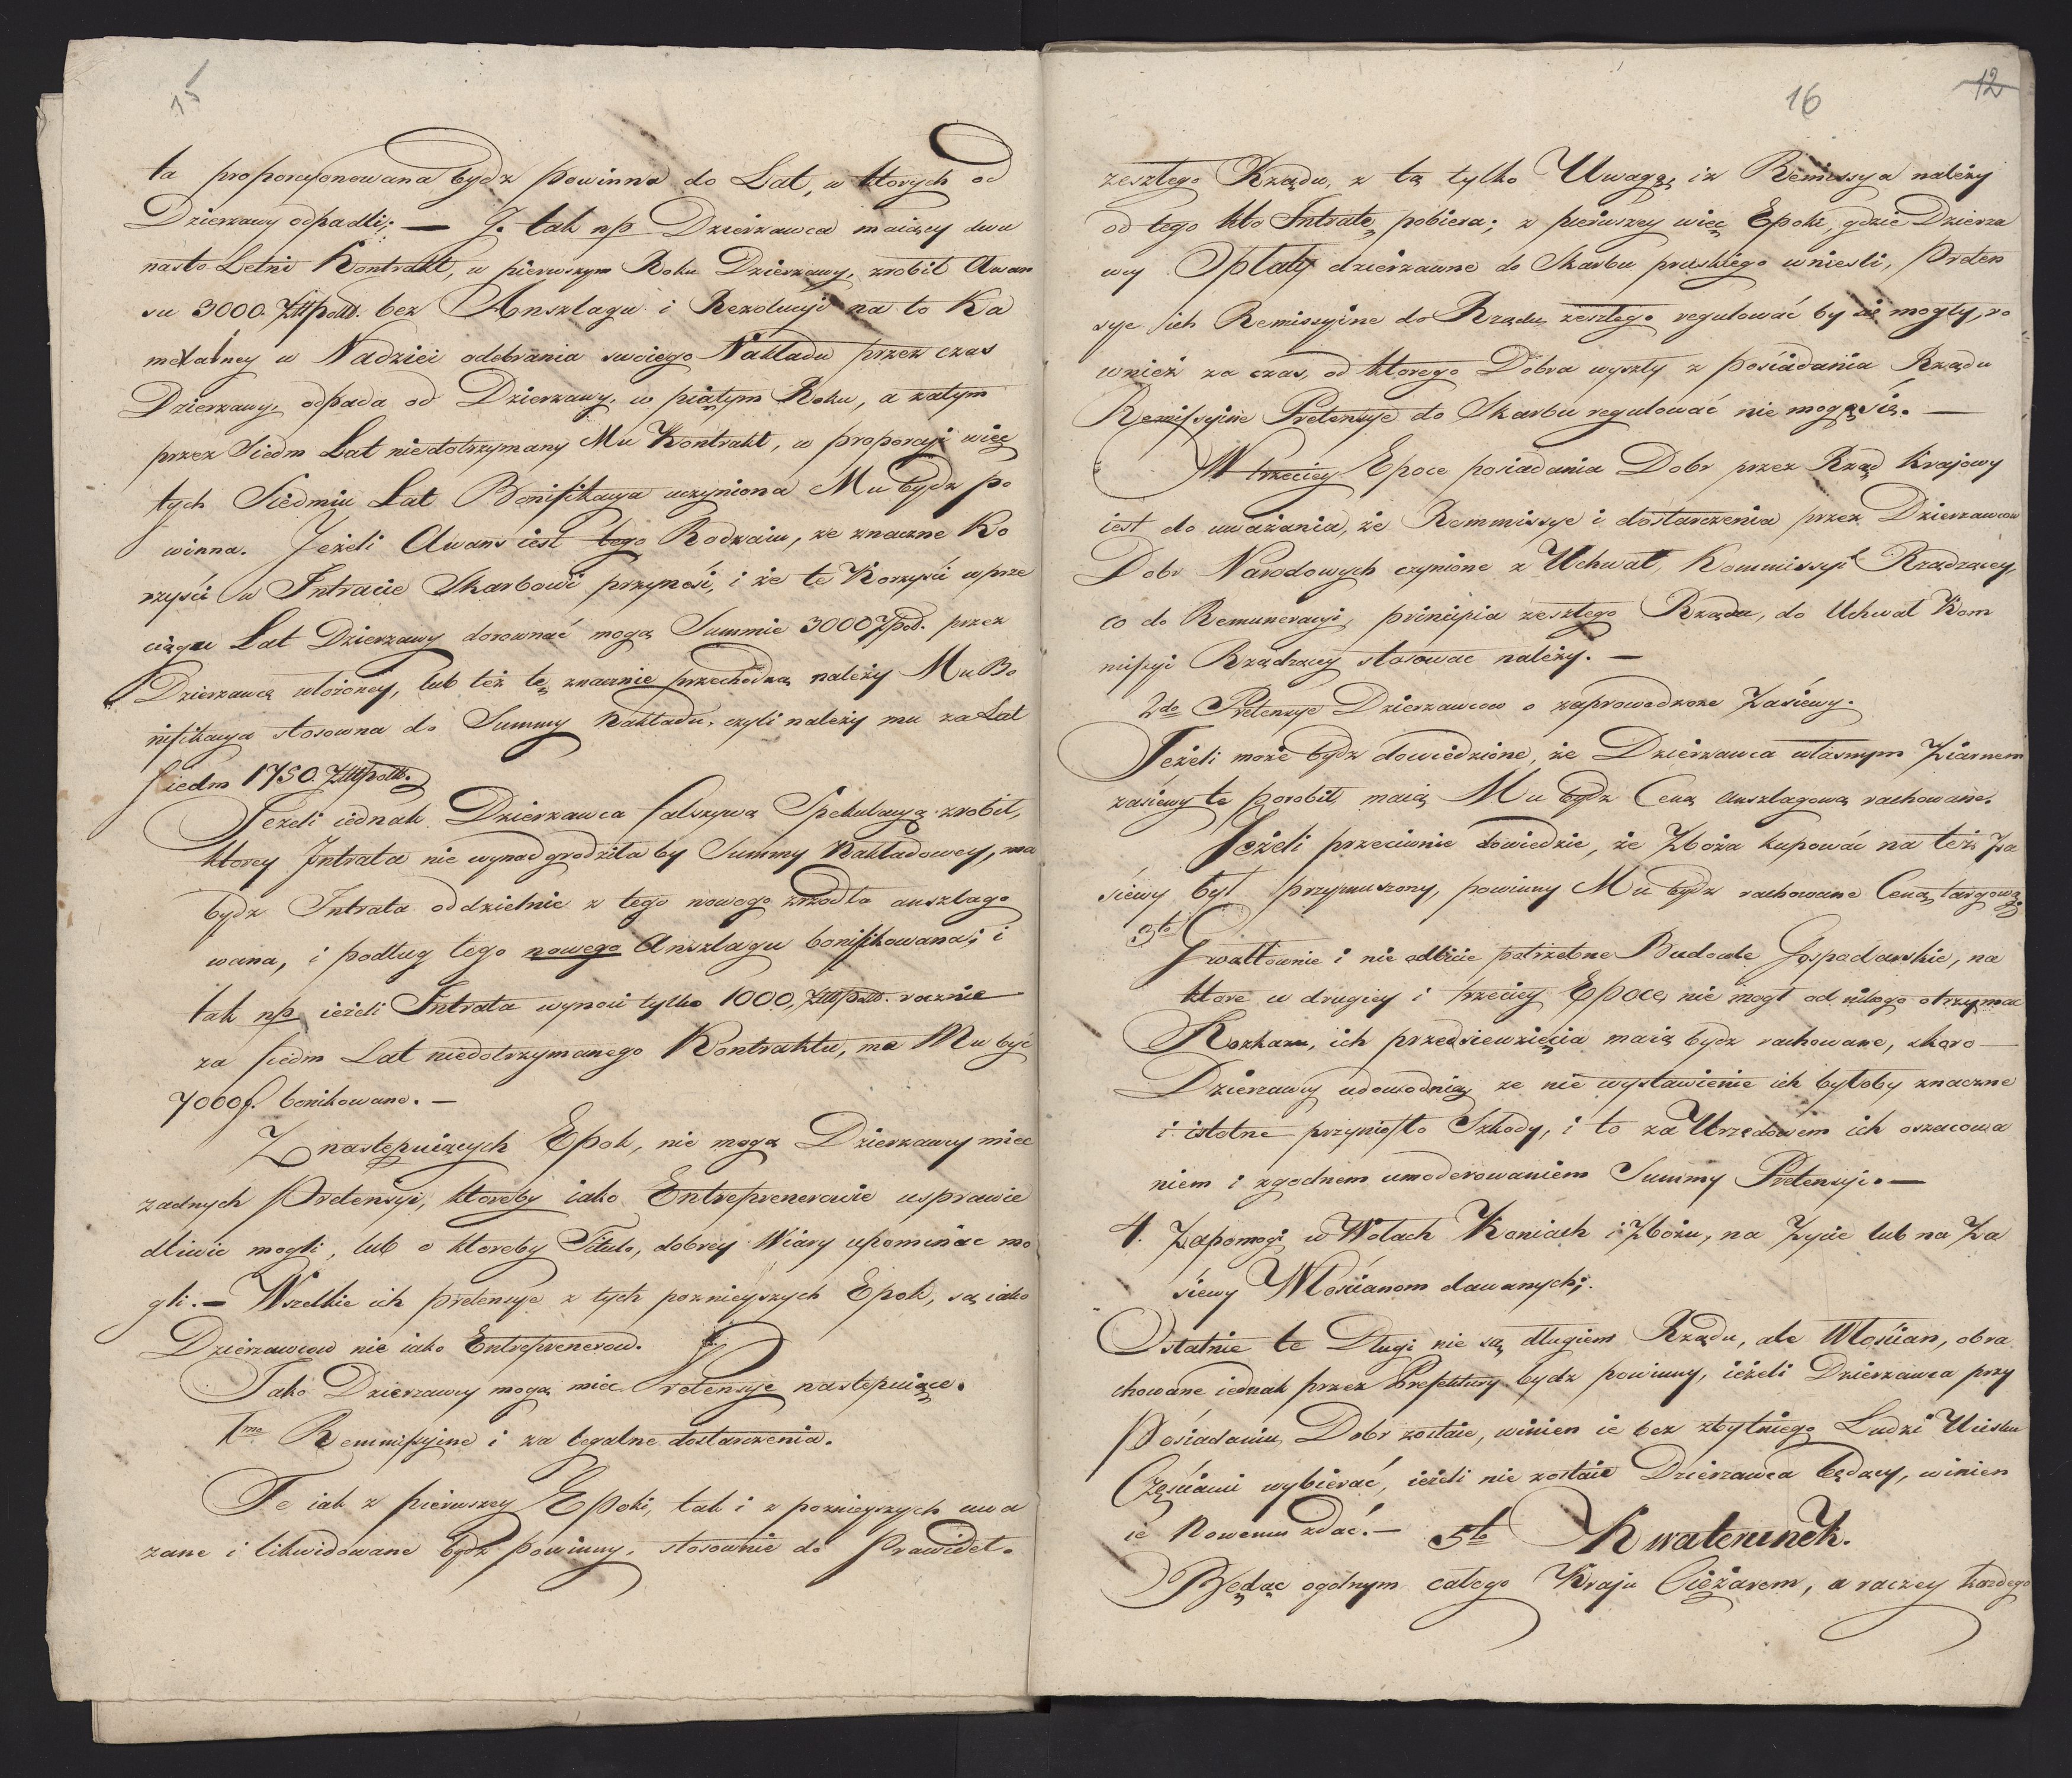 15
ta proporcyonowana bydz powinna do Lat, w ktorych od
Dzierzawy odpadli; — J. tak np Dzierzawca maiący dwu
nasto Letni Kontrakt, w pierwszym Roku Dzierzawy, zrobił Awan
su 3000. Zttpoll. bez Anszlagu i Rezolucyi na to Ka
meralney w Nadziei odebrania swoiego Nakładu przez czas
Dzierzawy, odpada od Dzierzawy, w piątym Roku, a zatym
przez Siedm Lat niedotrzymany Mu Kontrakt, w proporcyi więc
tych Siedmiu Lat Bonifikacya uczyniona Mu bydz po
winna. Jeżeli Awans iest tego Rodzaiu, ze znaczne Ko
rzyści w Intracie Skarbowi przynosi, i że te Korzyści w prze
ciągu Lat Dzierzawy dorownać mogą Summie 3000 Zpol. przez
Dzierzawcę włożoney, lub też te znacznie przechodzą należy Mu Bo
nifikacya stosowna do Summy Nakładu, czyli należy mu za Lat
siedm 1750. Zttpoll.
Jeżeli iednak Dzierzawca fałszywą Spekulacyą zrobił,
ktorey Intrata nie wynadgrodziła by Summy Nakładowey, ma
bydz Intrata oddzielnie z tego nowego zrzodła anszlago
wana, i podług tego nowego Anszlagu bonifikowana; i
tak np ieżeli Intrata wynosi tylko 1000, Zttpoll. rocznie
za siedm Lat niedotrzymanego Kontraktu, ma Mu być
7000f. bonikowano. —
Z następuiących Epok, nie mogą Dzierzawcy miec
zadnych Pretensyi, ktoreby iako Entreprenerowie usprawie
dliwic mogli, lub o ktoreby Titulo, dobrey Wiary upominac mo
gli. — Wszelkie ich pretensye z tych poznieyszych Epok, są iako
Dzierzawcow nie iako Entreprenerow.
Jako Dzierzawcy mogą miec Pretensye następuiące.
1mo Remmissyine i za legalne dostarczenia.
Te iak z pierwszey Epoki, tak i z poznieyszych uwa
zane i likwidowane bydz powinny, stosownie do Prawideł.
16
12
zeszłego Rządu, z tą tylko Uwagą, iz Remissya należy
od tego kto Intratę pobiera; z pierwszey więc Epoki, gdzie Dzierza
wcy Opłaty dzierzawne do Skarbu pruskiego wniesli, Preten
sye ich Remissyine do Rządu zeszłego regulować by się mogły, ro
wnież za czas, od ktorego Dobra wyszły z posiadania Rządu
Remissyine Pretensye do Skarbu regulować nie mogą się. —
W trzeciey Epoce posiadania Dobr przez Rząd krajowy
iest do uważania, że Remmissye i dostarczenia przez Dzierzawcow
Dobr Narodowych czynione z Uchwał, Kommissyi Rządzącey,
co do Remuneracyi, principia zeszłego Rządu, do Uchwał Kom
missyi Rządzącey stosowac należy. —
2do Pretensye Dzierzawcow o zaprowadzone Zasiewy.
Jeżeli może bydz dowiedzione, że Dzierzawca własnym Ziarnem
zasiewy te porobił, maią Mu bydz Ceną anszlagową rachowane.
Jeżeli przeciwnie dowiedzie, że Zboża kupować na też Za
siewy był przymuszony, powinny Mu bydz rachowane Ceną targową.
3tio
Gwałtownie i nie odbicie potrzebne Budowle Gospodarskie, na
ktore w drugiey i trzeciey Epoce, nie mogł od nikogo otrzymac
Rozkazu, ich przedsiewzięcia maią bydz rachowane, skoro —
Dzierzawcy udowodnią, ze nie wystawienie ich byłoby znaczne
i istotne przyniosło Szkody, i to za Urzędowem ich oszacowa
niem i zgodnem umoderowaniem Summy Pretensyi. —
4. Zapomogi w Wołach Koniach i Zbożu, na Zycie lub na Za
siewy Włościanom dawanych;.
Ostatnie te Długi nie są długiem Rządu, ale Włoscian, obra
chowane iednak przez Prefektury bydz powinny, ieżeli Dzierzawca przy
Posiadaniu Dobr zostaie, winien ie bez zbytniego Ludzi Ucisku
Częsciami wybierać, ieżeli nie zostaie Dzierzawca będący, winien
ie Nowemu zdać. — 5to Kwaterunek.
Będąc ogolnym całego Kraju Ciężarem, a raczey kazdego